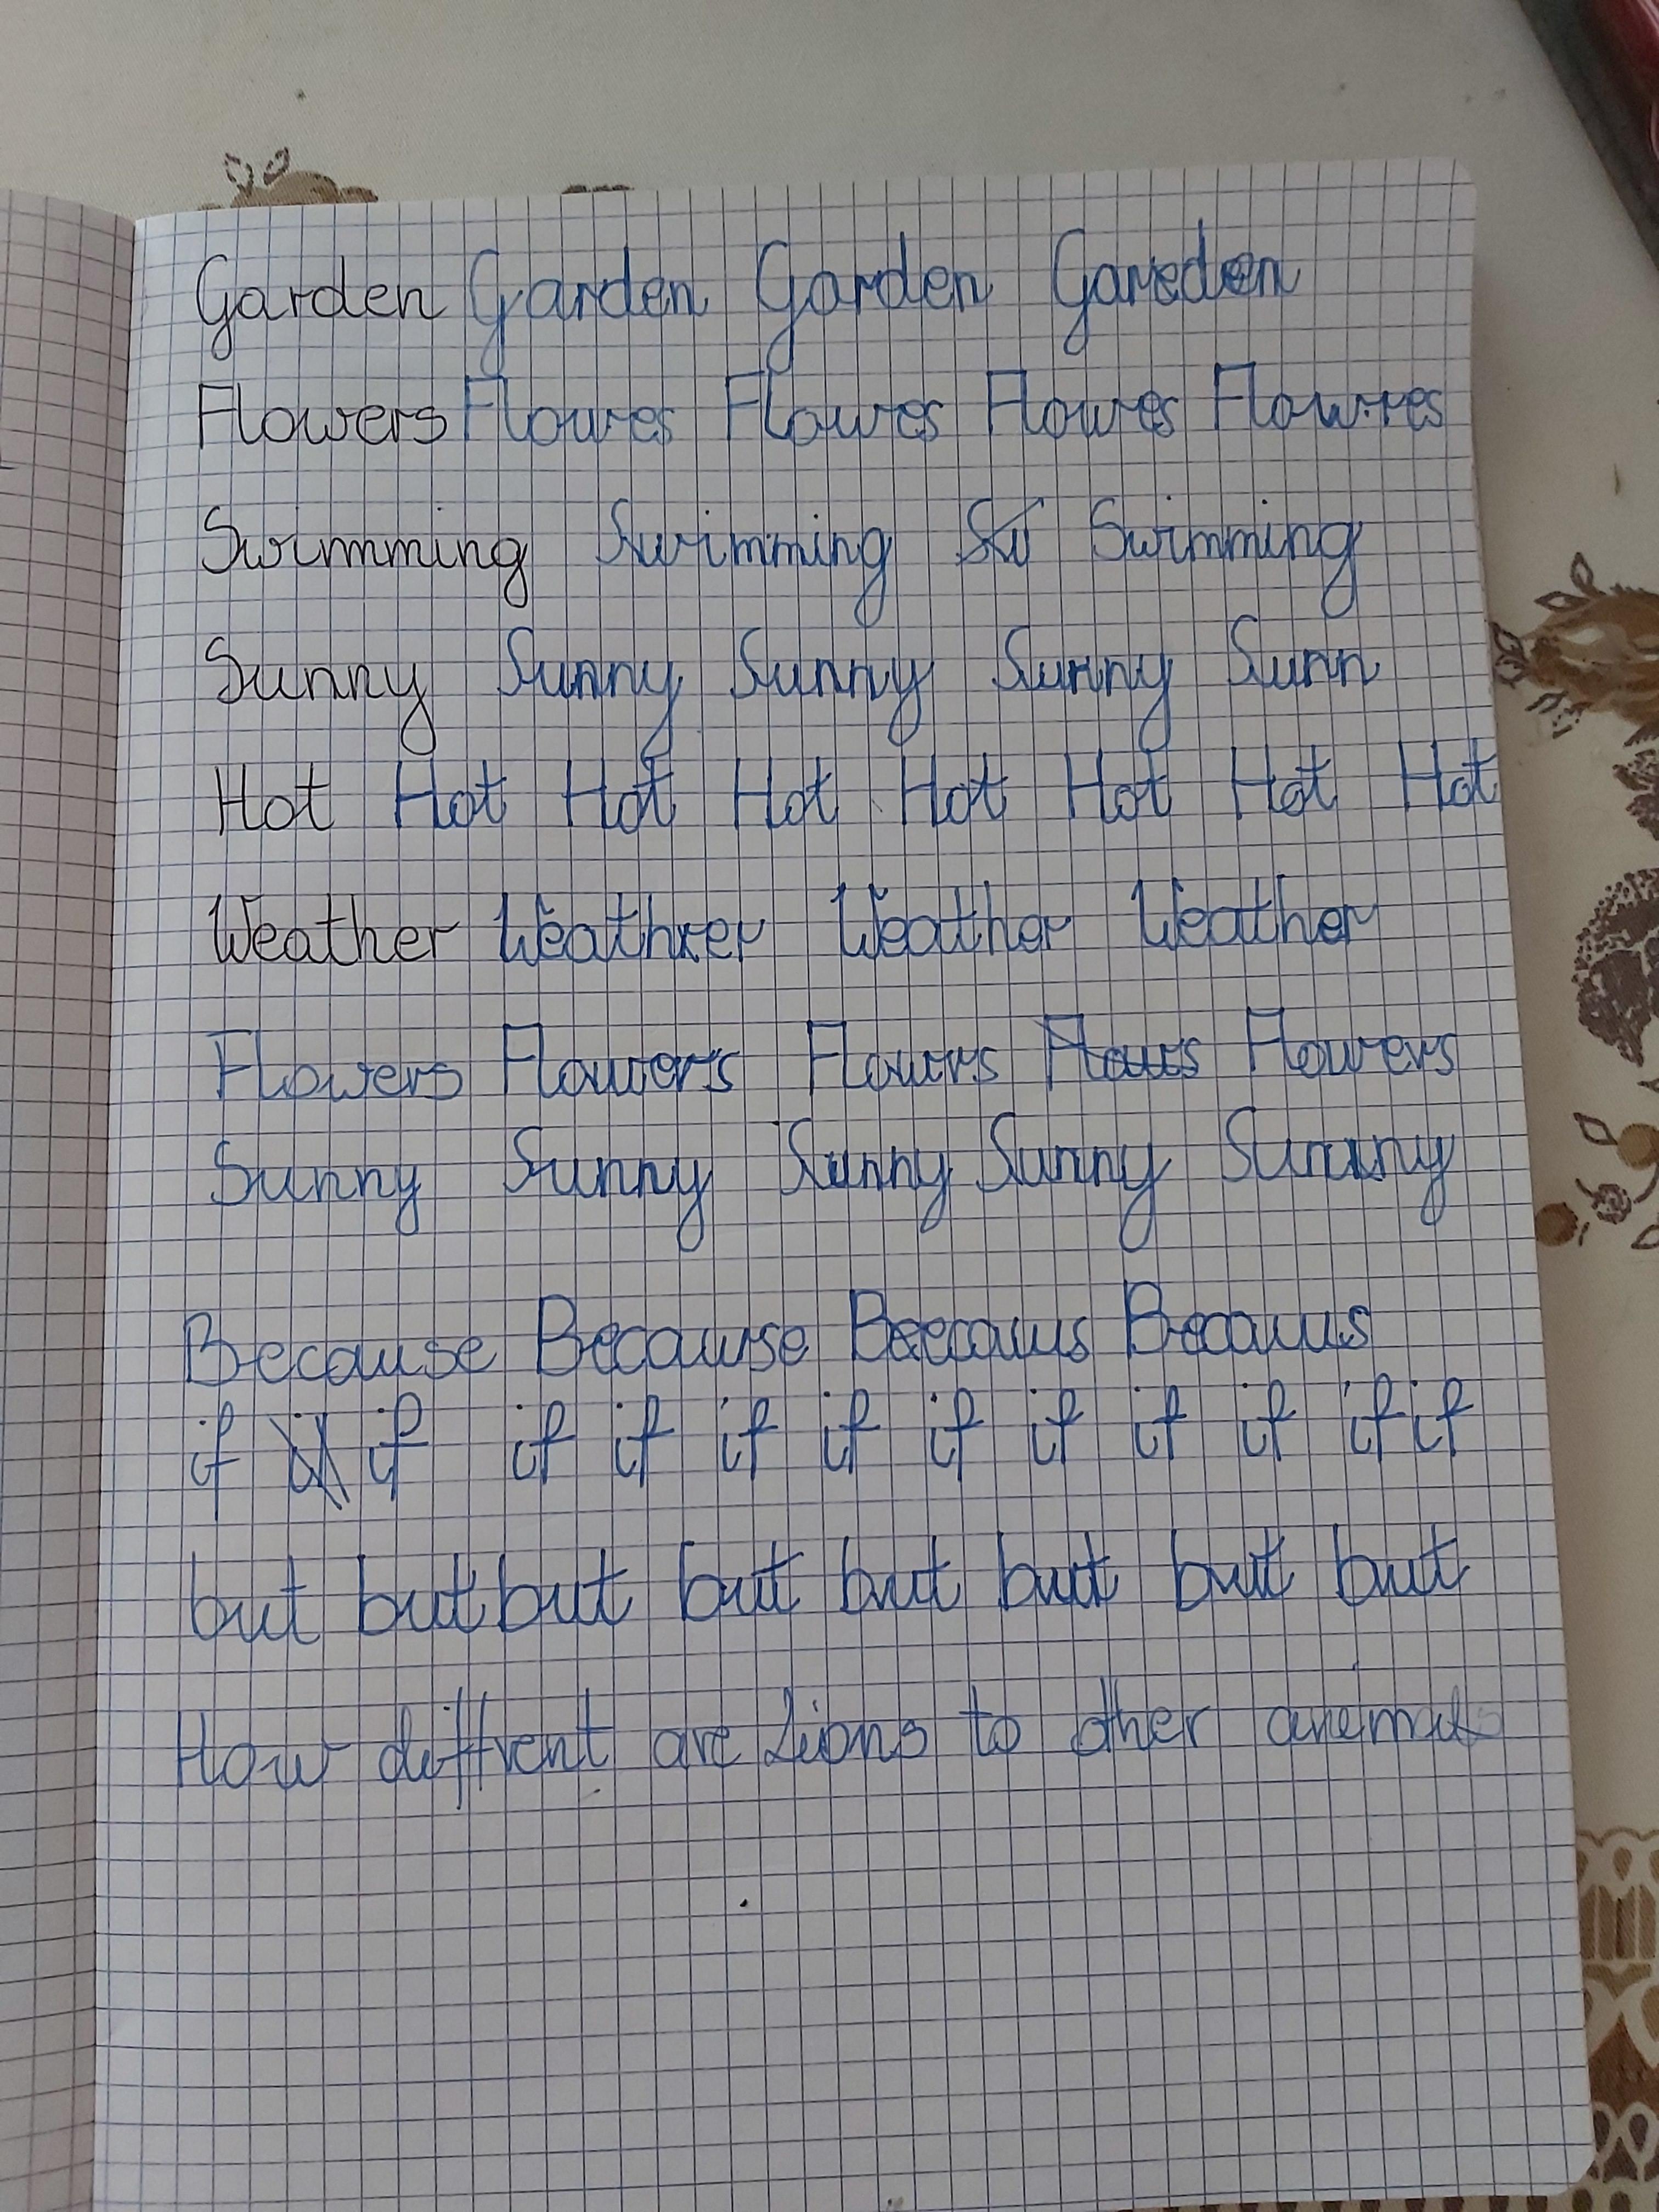 Garden Garden Garden Gareden
Flowers Flowes Flowes Flowes Flowres
Swimming Swimming Sw Swimming
Sunny Sunny Sunny Sunny Sunn
Hot Hot Hot Hot Hot Hot Hot Hot
Weather Weathrer Weather Weather
Flowers Flowers Flowers Flowers
Sunny Sunny Sunny Sunny Sunny
Because Because Becaus
if if if if if if if if if if if if
but but but but but but but but
How diffrent are Lions to other anemals